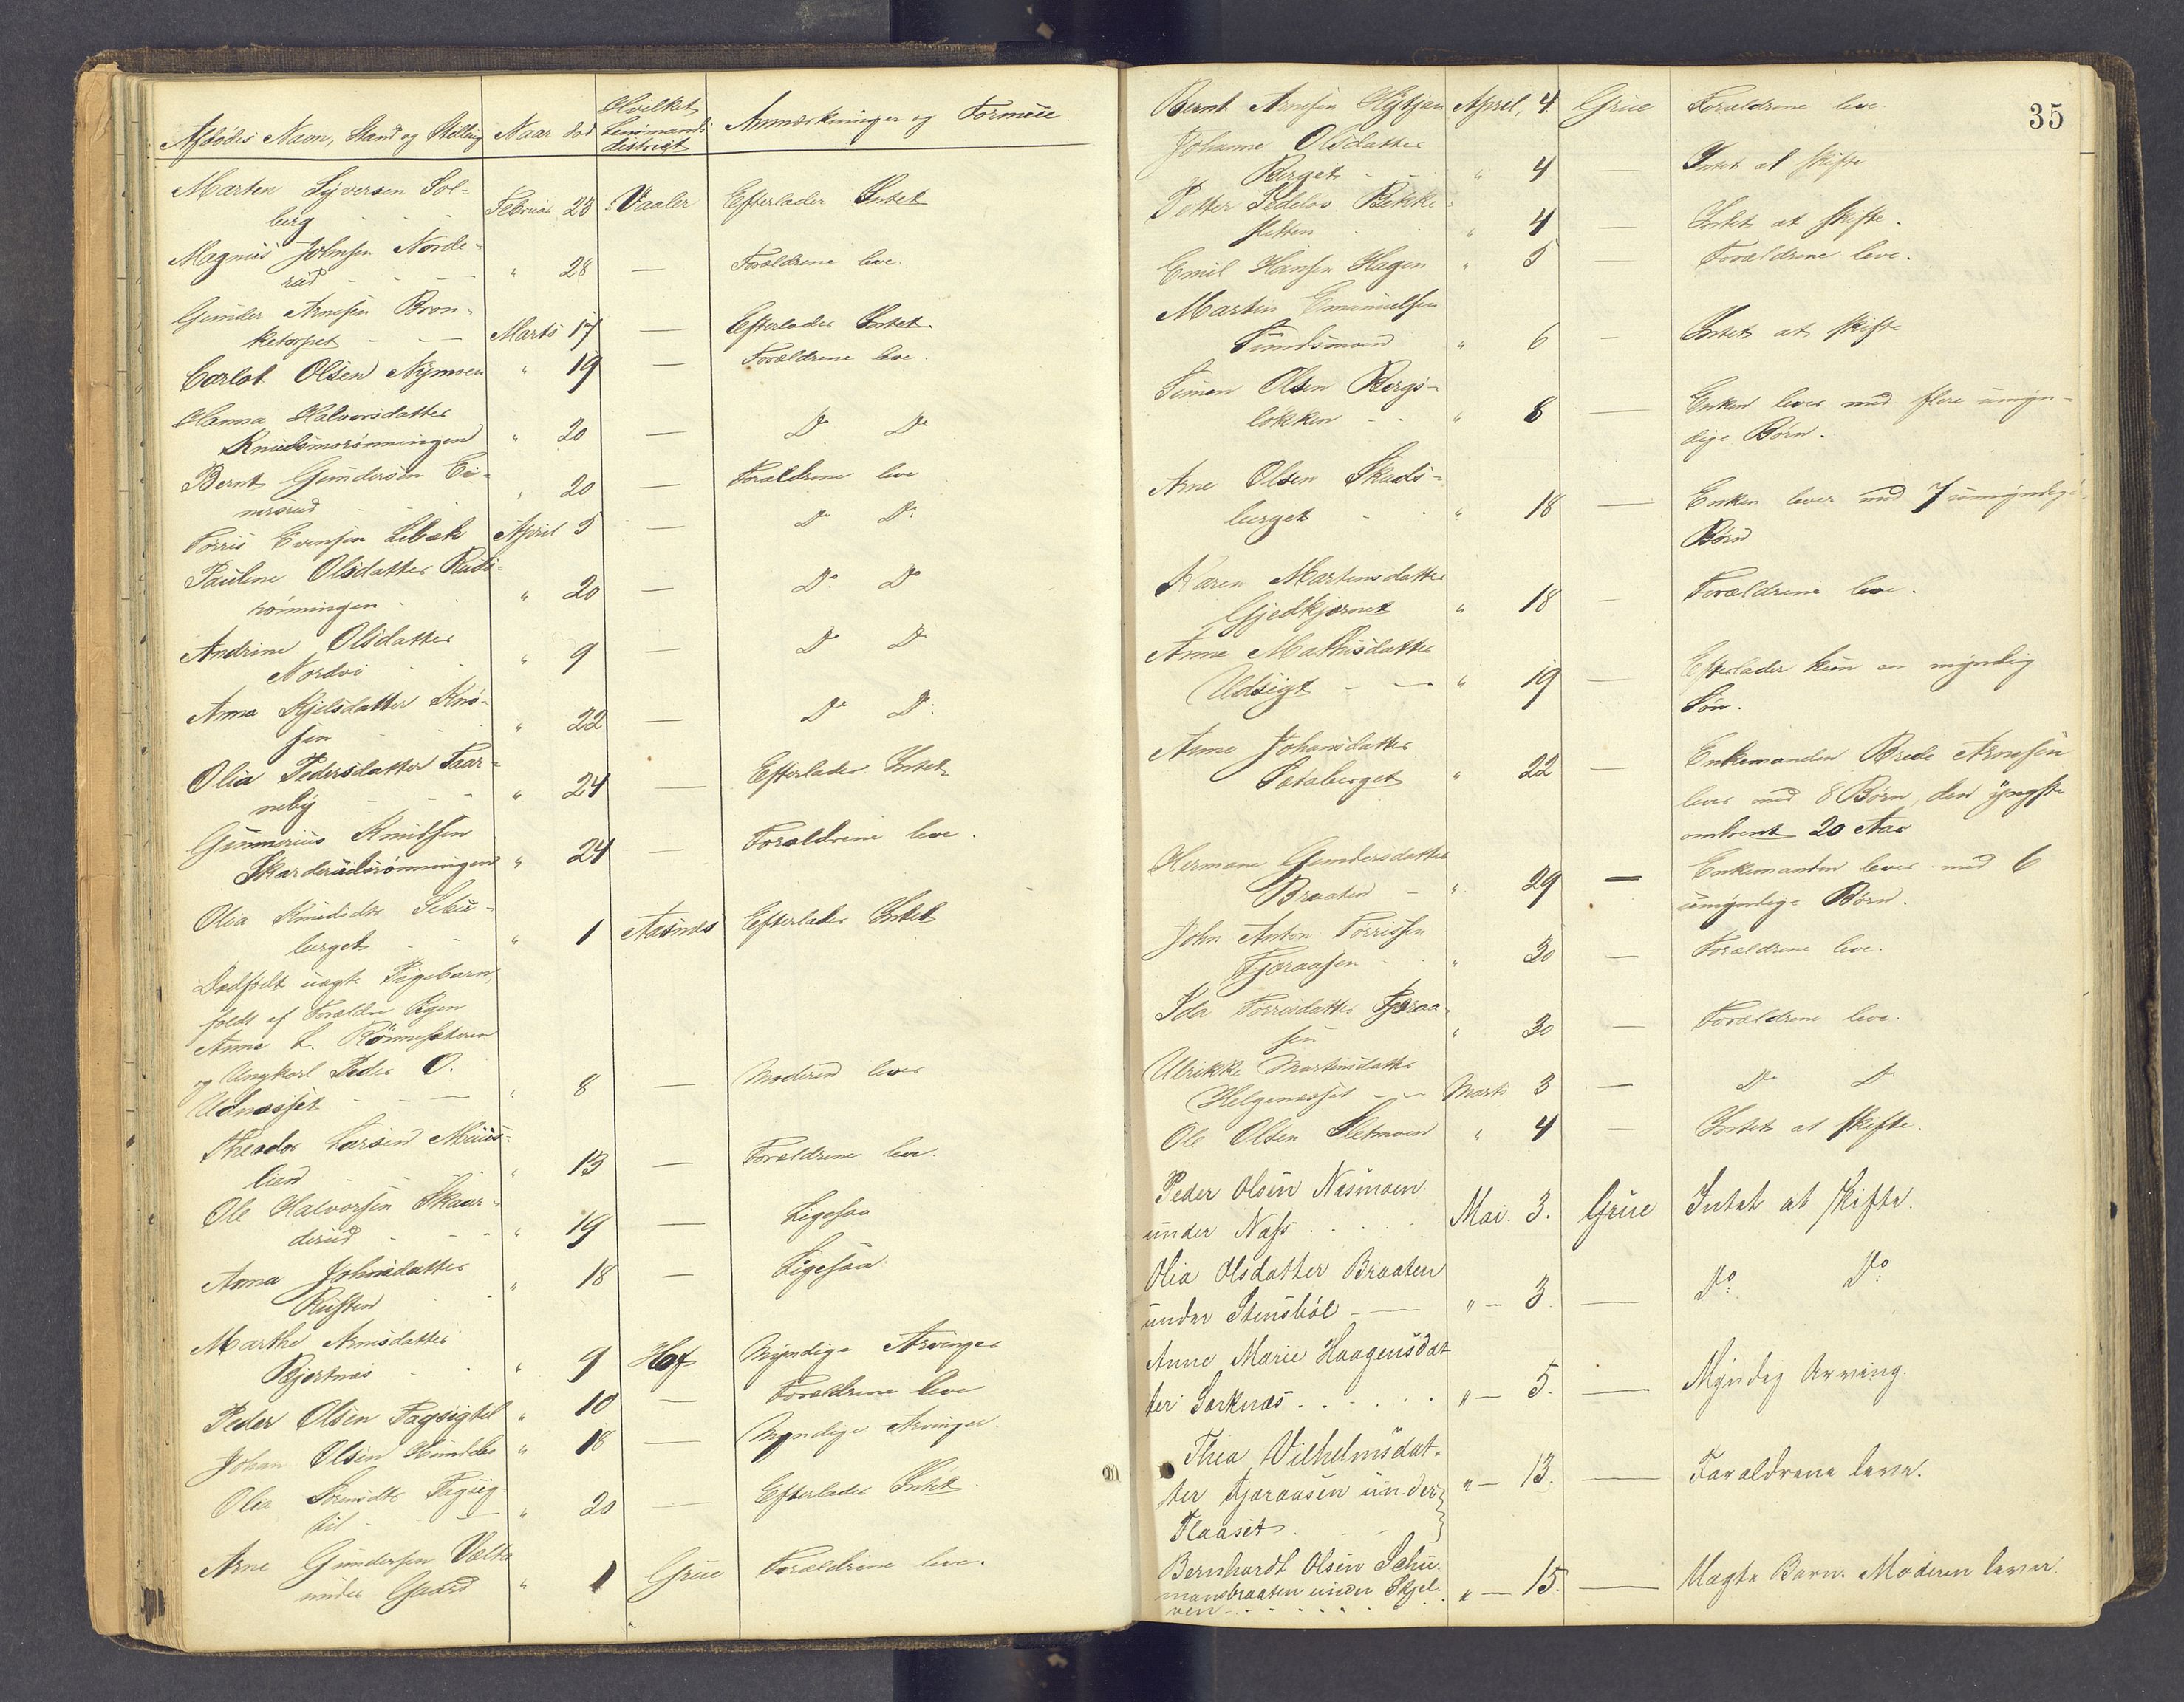 Afdødes Navn, Stand og Stilling Naar død Hvilket Lensmandsdistrigt Anmærkninger og Formue.
Martin Syversen Sol-
berg Februar 23 Vaaler Efterlader Intet
Magnus Johnsen Norde-
rud " 28 — Forældrene leve.
Gunder Arnesen Bron-
ketorpet Marts 17 — Efterlader Intet.
Carlot Olsen Nymoen " 19 — Forældrene leve.
Hanna Halvorsdatter
Knudsmorönningen " 20 — Do Do
Bernt Gundersen Ei-
nersrud " 20 — Forældrene leve
Torris Evensen Libæk April 5 — Do Do
Pauline Olsdatter Ruds-
rönningen " 20 — Do Do
Andrine Olsdatter
Nordvi " 9 — Do Do
Anna Kjelsdatter Knø-
sen " 22 — Do Do
Olia Pedersdatter Taar-
neby " 24 — Efterlader Intet
Gunnerius Knudsen
Skarderudsrönningen " 24 — Forældrene leve.
Olia Knudsdtr
berget " 1 Aasnæs Efterlader Intet
Dødfødt uægte Pigebarn,
født af Forældre Pigen
Anna L. Rönnesæteren
og Ungkarl Peder O.
Udnæsset " 8 — Moderen lever
Theodor Larsen
lien " 13 — Forældrene leve.
Ole Halvorsen Skaar-
derud " 19 — Ligesaa
Anna Johnsdatter
Rusten " 18 — Ligesaa
Marthe Arnesdatter
Bjertnæs " 9 Hof Myndige Arvinger
Peder Olsen Fagsigtil " 10 — Forældrene leve
Johan Olsen " 18 — Myndige Arvinger
Olia Fagsig-
til " 20 — Efterlader Intet.
Arne Gundersen Vælta
under Gaard " 1 Grue Forældrene leve.
35
Bernt Arnesen April, 4 Grue Forældrene leve
Johanne Olsdatter
Berget " 4 — Intet at skifte
Petter Bække-
sletten " 4 — Intet at skifte.
Emil Hansen Hagen " 5 — Forældrene leve.
Martin Emanuelsen
Sundsmoen " 6 — Intet at skifte
Simen Olsen Bergs-
løkken " 8 — Enken lever med flere umyn-
dige Børn.
Arne Olsen Skads-
berget " 18 — Enken lever med 7 umyndige
Børn
Karen Martinsdatter
Gjedtjernet " 18 — Forældrene leve.
Anne Mathisdatter
Udsigt " 19 — Efterlader kun en myndig
Søn.
Anne Johansdatter
" 22 — Enkemanden Brede Arnesen
lever med 8 Børn, den yngste
omtrent 20 Aar
Hermane Gundersdatter
Braaten " 29 — Enkemanden lever med 6
umyndige Børn.
John Anton Torrissen
Tjøraasen " 30 — Forældrene leve.
Ida Torrisdatter Tjøraa-
sen " 30 — Forældrene leve.
Ulrikke Martinsdatter
Helgenæsset Marts 3 — Do Do
Ole Olsen Sletmoen " 4 — Intet at skifte.
Peder Olsen Næsmoen
under Næss Mai 3. Grue Intet at skifte.
Olia Olsdatter Braaten
under Stensböl " — 3. — Do Do
Anne Marie Haagensdat
ter Sorknæs " — 5. — Myndig Arving.
Thea Vilhelmsdat-
ter Tjøraasen under " — 13. — Forældrene leve.
Flaaset
Bernhardt Olsen Schu-
manbraaten under Skjel- " — 15. — Uægte Barn. Moderen lever.
ven